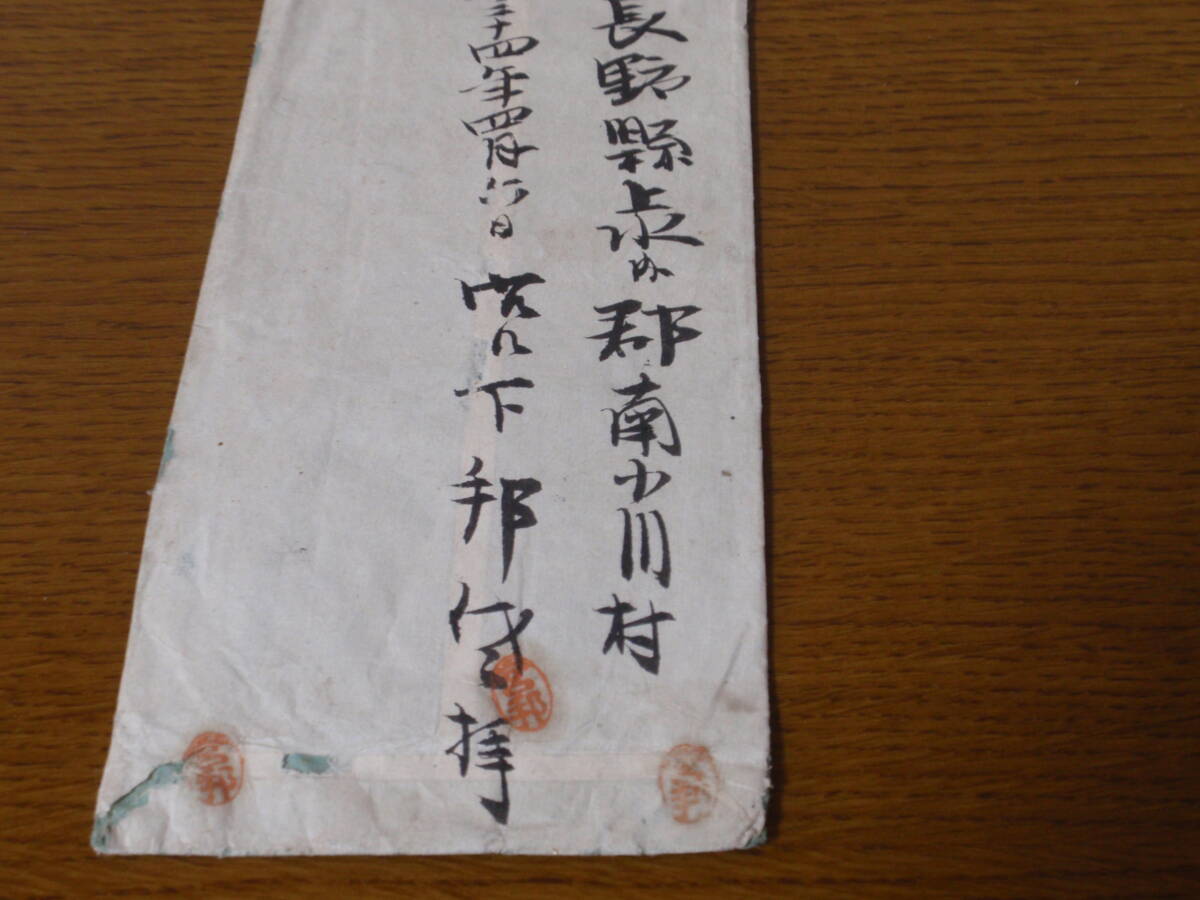 長野縣上水内郡南小川村
三十四年四月六日 下邦 拝